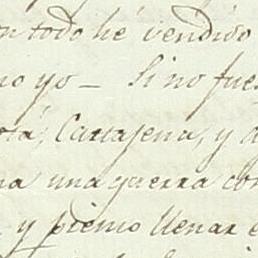 n todo hé vendido
no yo — Si no fue
otá, Cartajena, y a
na una guerra con
y pienso llenar e